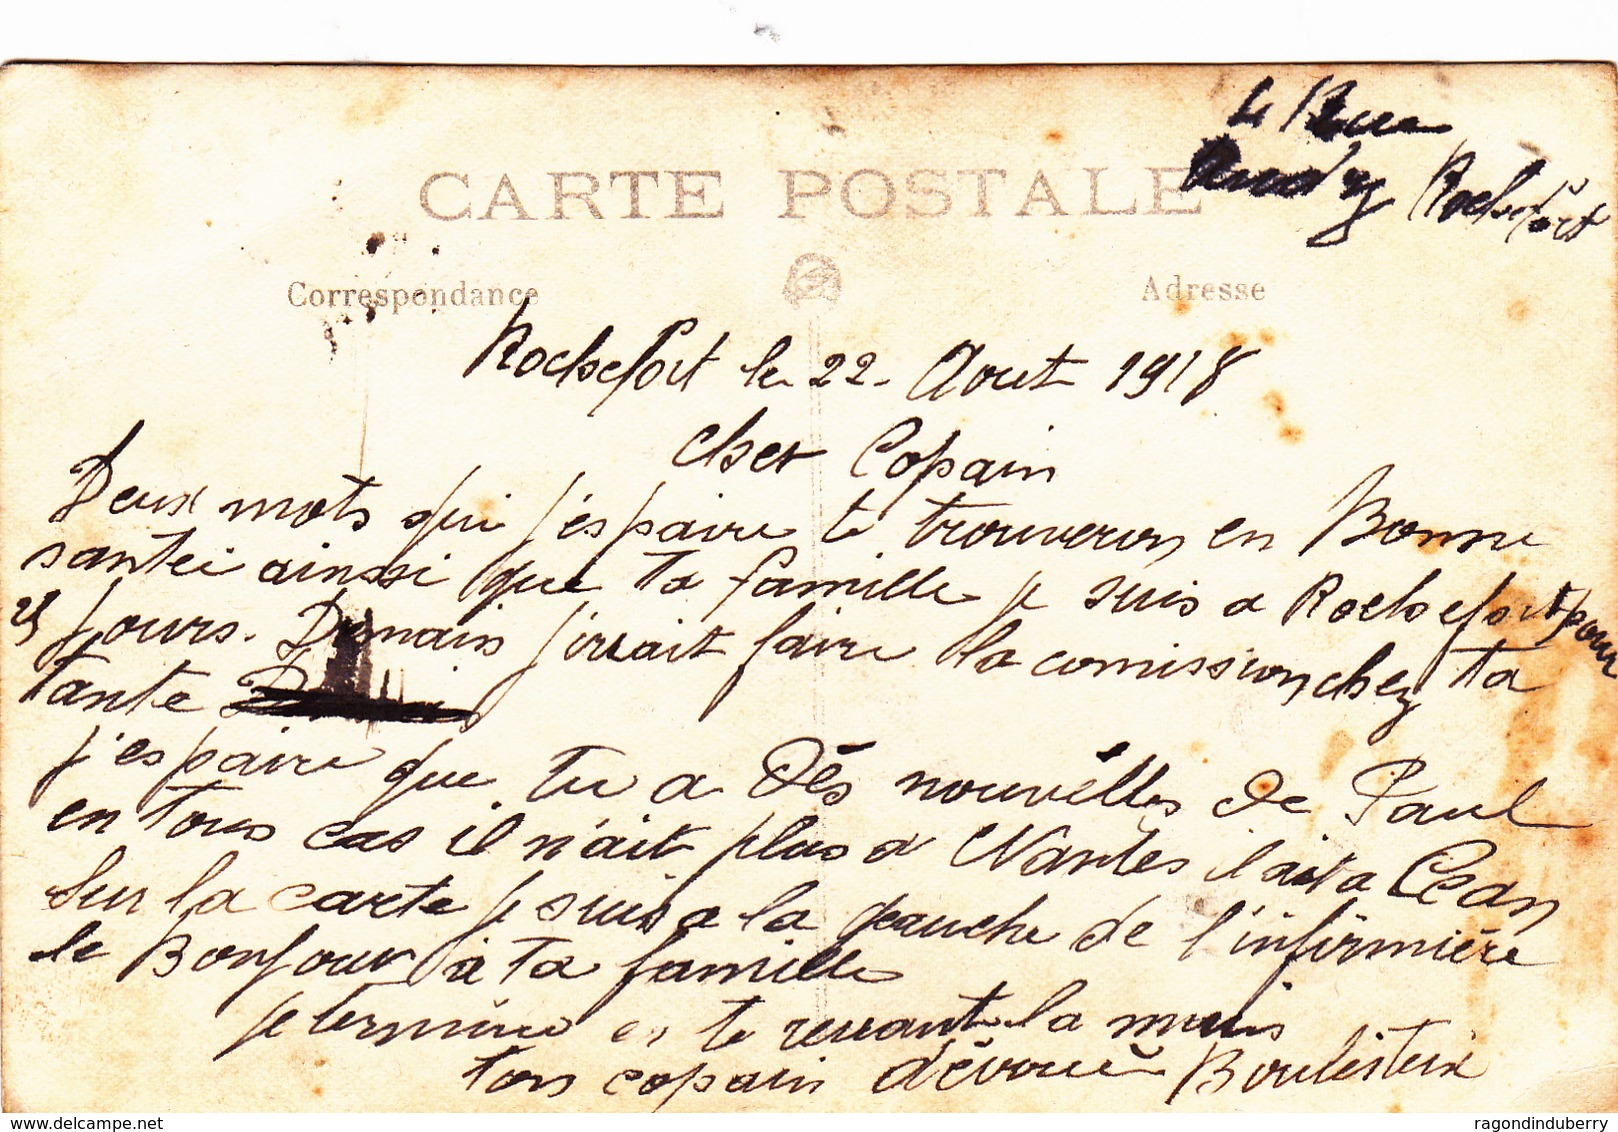 4 Rue
Rochefort
CARTE POSTALE
Correspondance
Adresse
Rochefort le 22. Aout 1918
cher Copain
Deux mots qui j'espaire te trouveron en Bonne
santei ainssi que ta famille je suis a Rochefort pour
25 jours. Demain j'irrait faire la comission chez ta
tante
j'espaire que tu a dés nouvélles de Paul
en tous cas il n'ait plus a Nantes il ait a Cean
sur la carte je suis a la gauche de l'infirmiére
le Bonjour à ta famille
je termine en te serrant la main
ton copain dévoué Boulesteix
delcampe.net
ragondinduberry